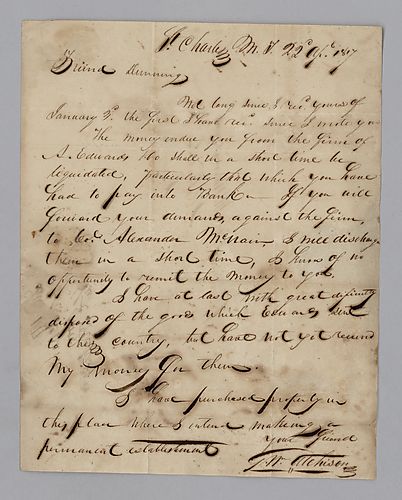 St. Charles M. T. 22d Apl. 1817
Friend Dunning
Not long since I recd yours of
January 3d. the last I have recd. since I wrote you
The money due you from the firm of
A. Edwards & Co shall in a short time be
liquidated, particularly that which you have
had to pay into Bank — If you will
forward your demands against the firm,
to Col. Alexander McNair I will discharge
them in a short time, I know of no
opportunity to remit the money to you
I have at last with great difficulty
disposed of the goods which Edwards sent
to this country, but have not yet received
My Money for them.
I have purchased property in
this place where I intend making a
permanent establishment
your friend
Wm. Atchison